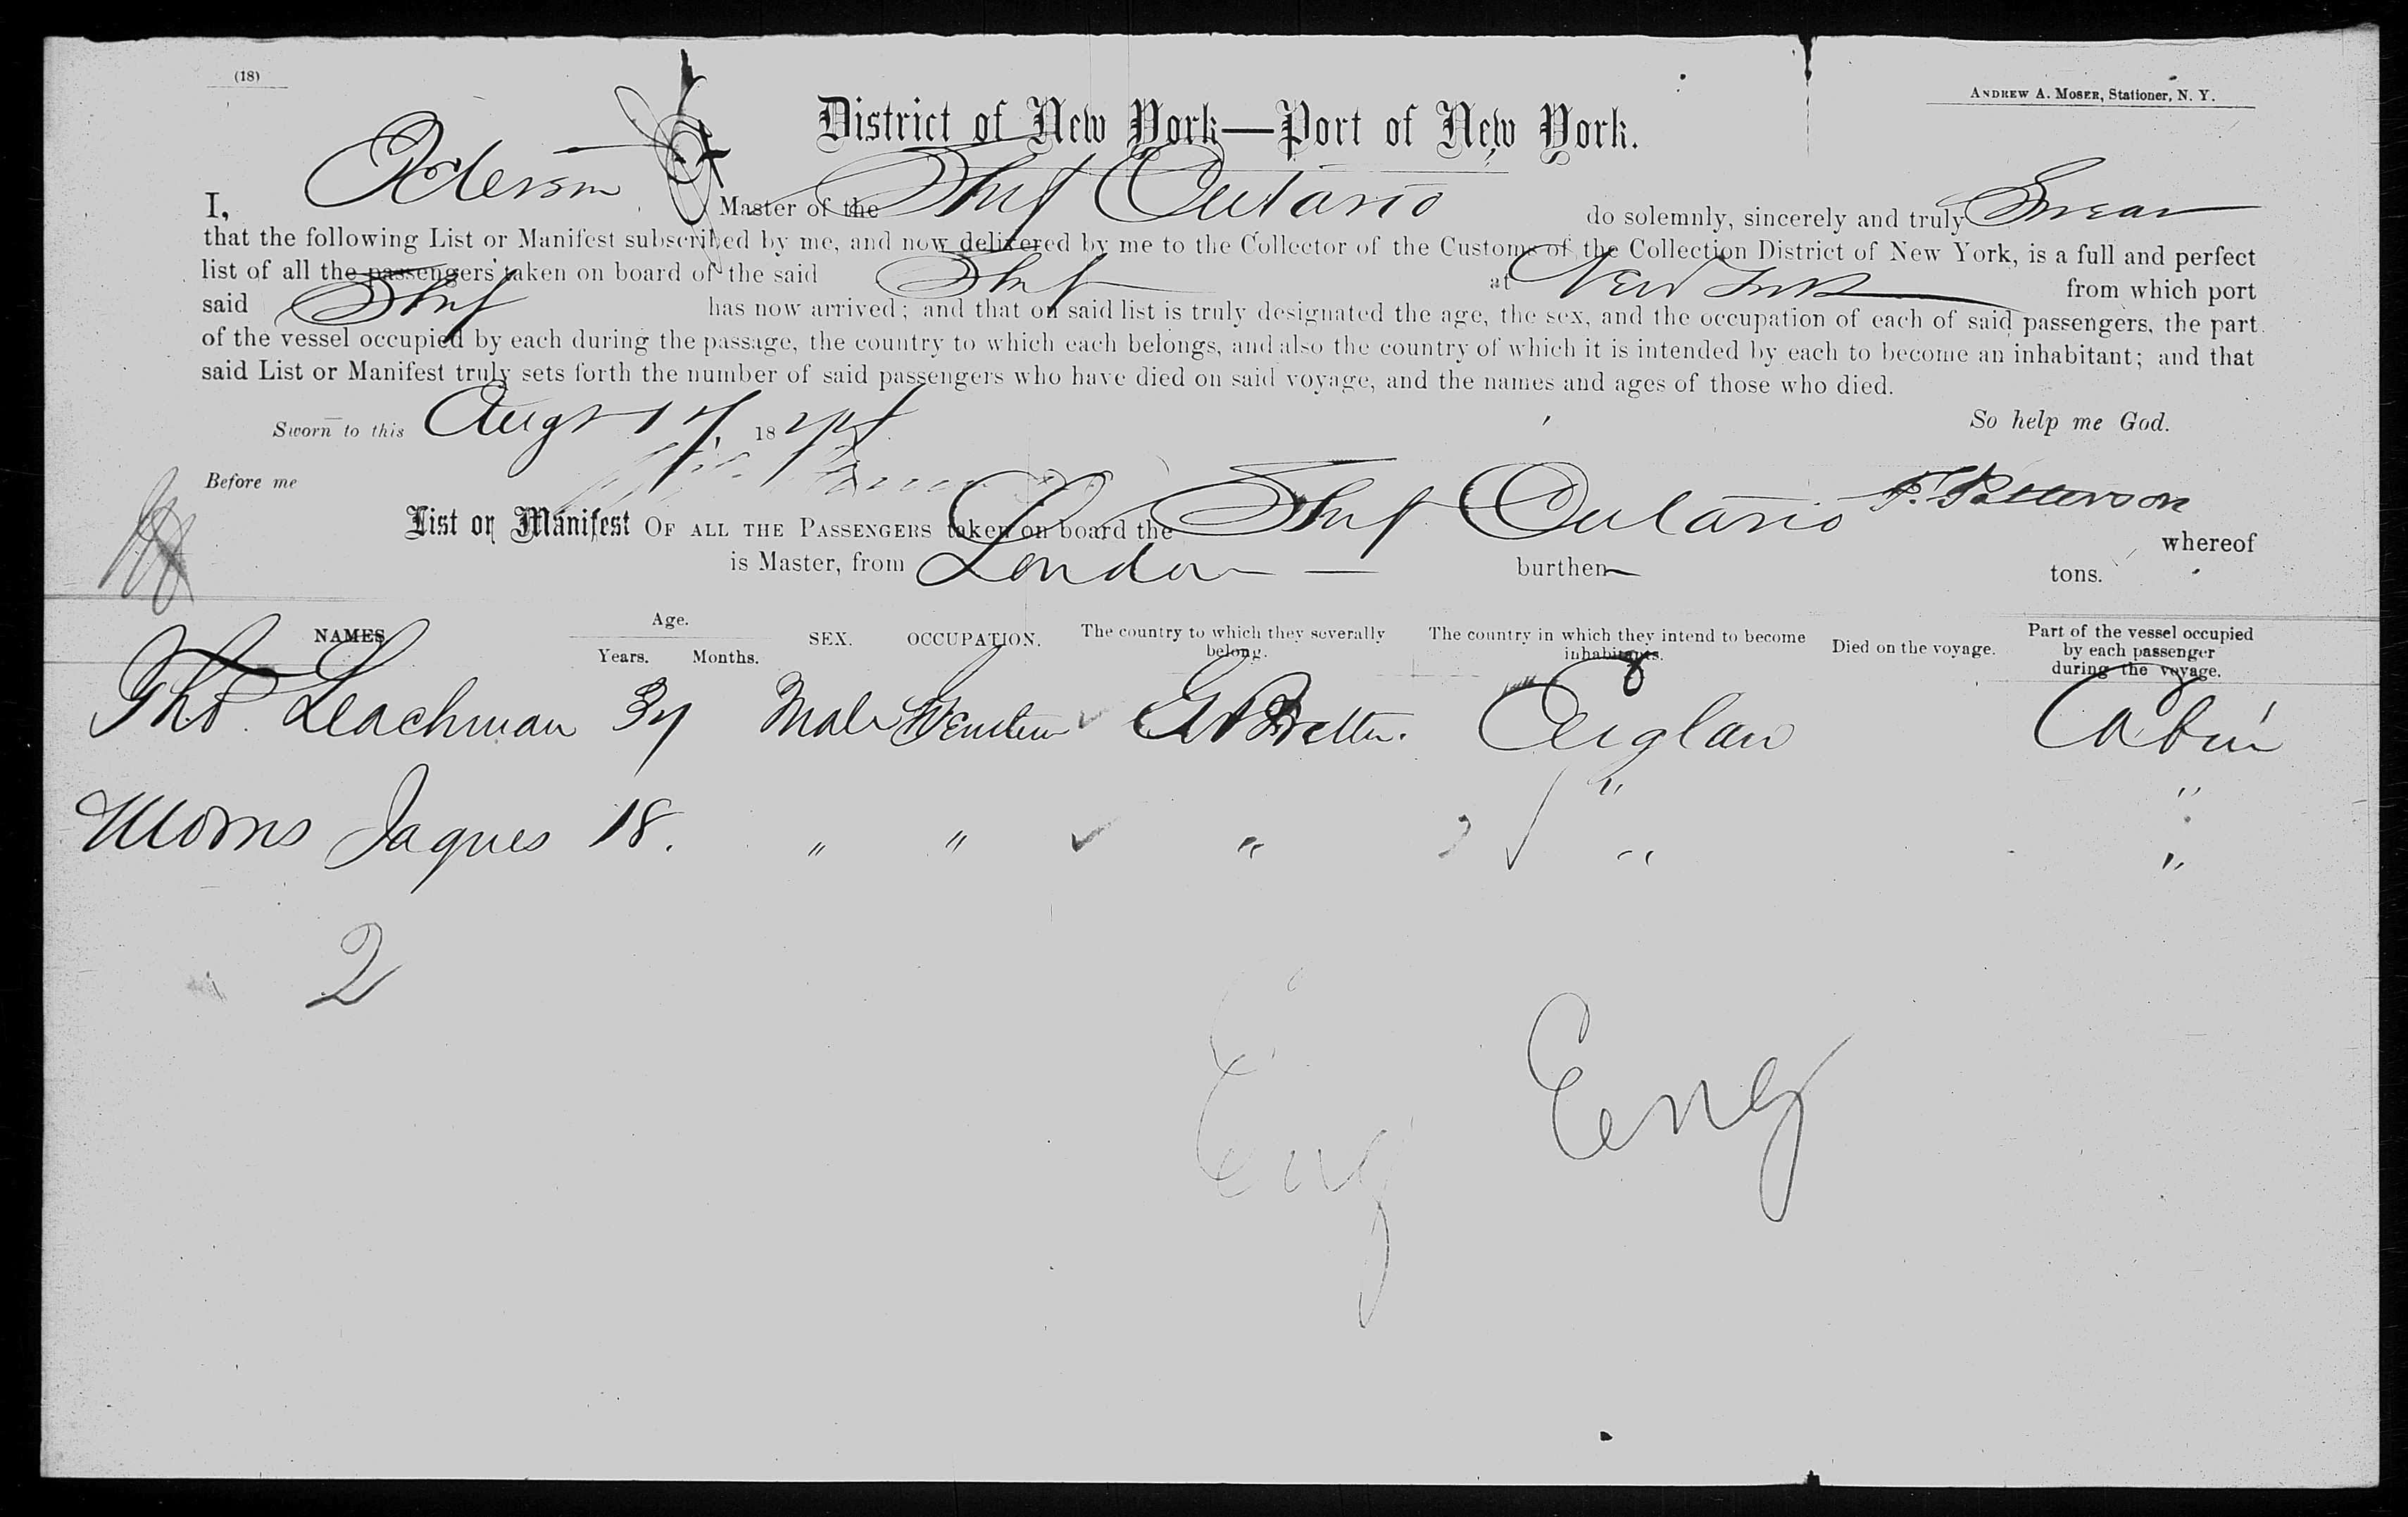 (18)
ANDREW A. MOSER, Stationer, N. Y.
District of New York—Port of New York.
I, Master of the Ship Ontario do solemnly, sincerely and truly Swear
that the following List or Manifest subscribed by me, and now delivered by me to the Collector of the Customs of the Collection District of New York, is a full and perfect
list of all the passengers taken on board of the said Ship at New York from which port
said Ship has now arrived; and that on said list is truly designated the age, the sex, and the occupation of each of said passengers, the part
of the vessel occupied by each during the passage, the country to which each belongs, and also the country of which it is intended by each to become an inhabitant; and that
said List or Manifest truly sets forth the number of said passengers who have died on said voyage, and the names and ages of those who died.
Sworn to this Augt 17 18 So help me God.
Before me
List or Manifest OF ALL THE PASSENGERS taken on board the Ship Ontario F. Patterson whereof
is Master, from London — burthen tons.
NAMES Age. Years. Months. SEX. OCCUPATION. The country to which they severally belong. The country in which they intend to become inhabitants. Died on the voyage. Part of the vessel occupied by each passenger during the voyage.
Thos. Leachman Male Gt Britten. Englan Cabin
" "
Morris Jaques 18. " " " " "
2
Eng Eng